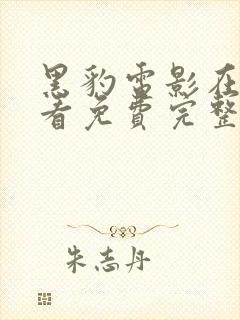 黑豹雷影在
看免费完整
朱志丹